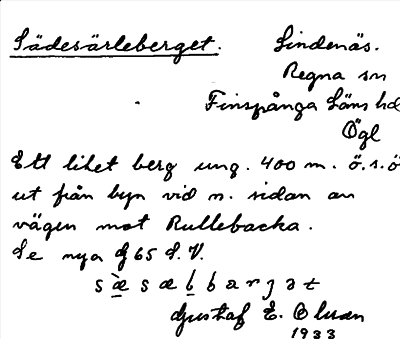 Sädesärleberget. Lindenäs.
Regna sn
Finspånga Läns hd
Ögl
Ett litet berg ung. 400 m. ö.s.ö
ut från byn vid n. sidan av
vägen mot Rullebacka.
Se nya G 65 S.V.
Gustaf E. Olsson
1933